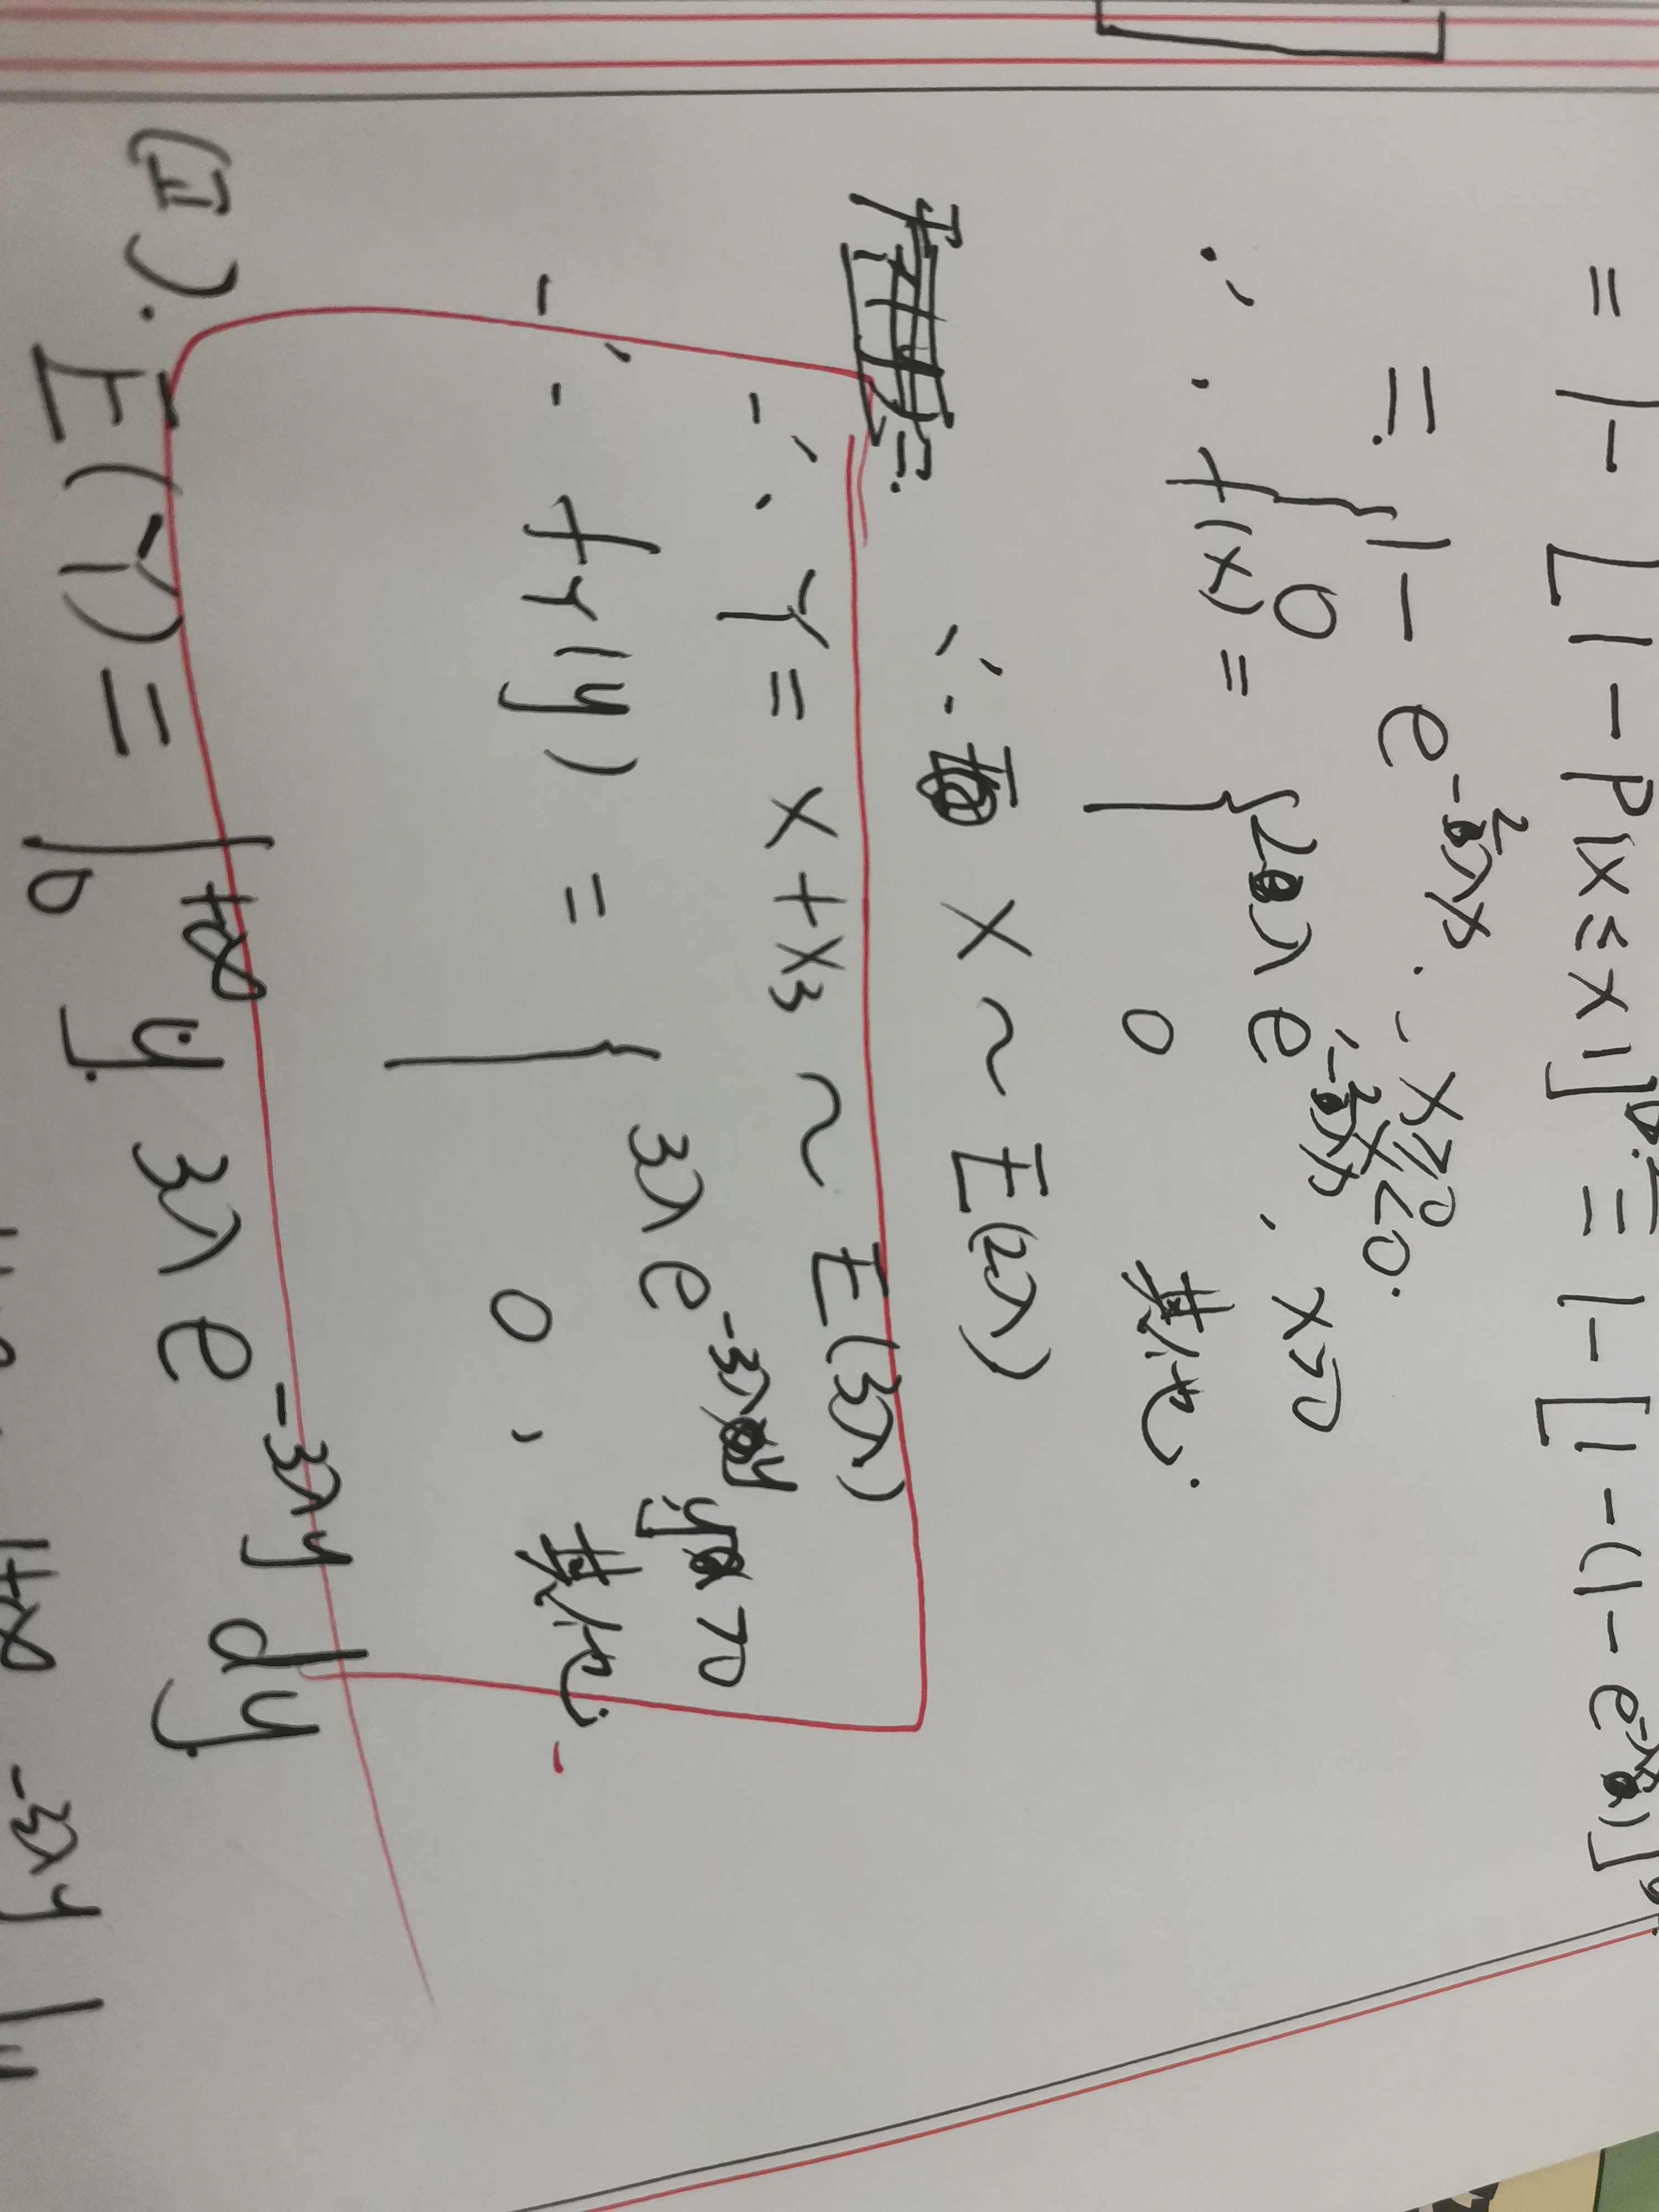 = 1 - [1 - P{X ≤ x}]² = 1 - [1 - (1 - e^{-λx})]²
= { 1 - e^{-2λx}, x ≥ 0
0 x < 0.
∴ f(x) = { 2λe^{-2λx}, x > 0
0 其他.
∴ X ~ E(2λ)
∴ Y = X + X₃ ~ E(3λ)
∴ f_Y(y) = { 3λe^{-3λy} y > 0
0, 其他.
(Ⅱ). E(Y) = ∫₀^{+∞} y 3λe^{-3λy} dy.